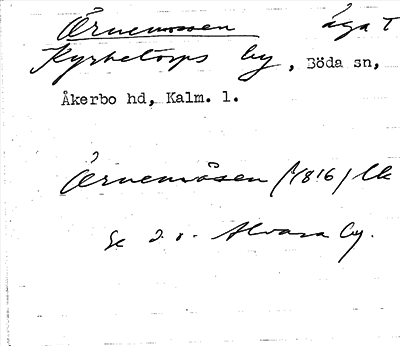 Örnemossen äga T
Kyrketorps by, Böda sn,
Åkerbo hd, Kalm. l.
Örnemåsen (1816) Lk
Se d.o. Alvara by.